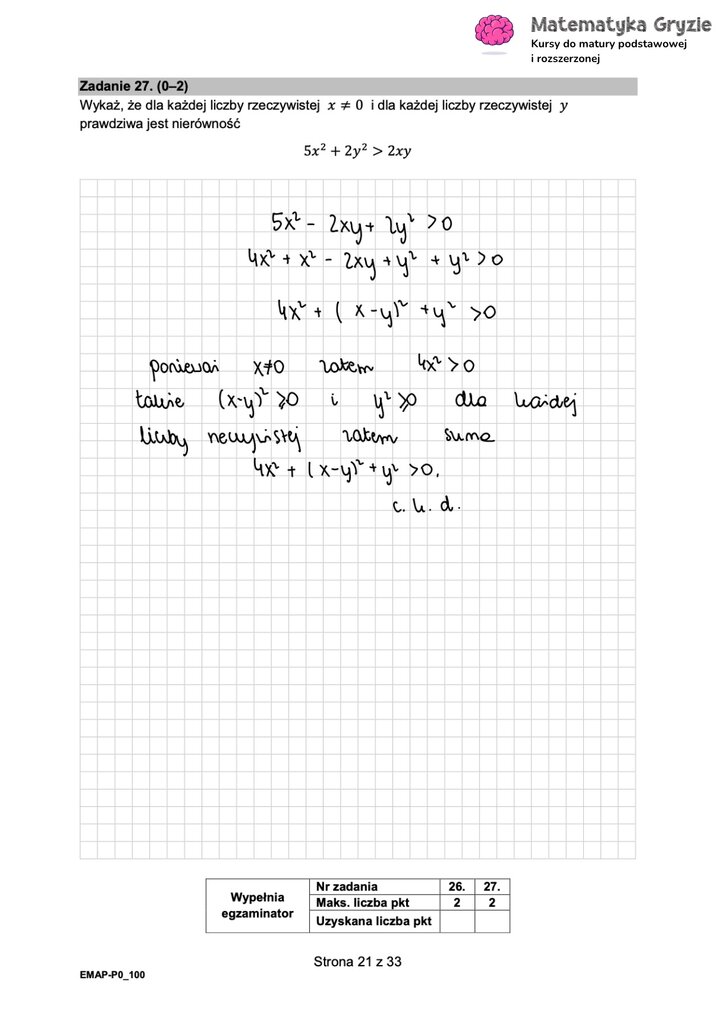 Matematyka Gryzie
Kursy do matury podstawowej
i rozszerzonej
Zadanie 27. (0–2)
Wykaż, że dla każdej liczby rzeczywistej x ≠ 0 i dla każdej liczby rzeczywistej y
prawdziwa jest nierówność
5x² + 2y² > 2xy
5x² - 2xy + 2y² > 0
4x² + x² - 2xy + y² + y² > 0
4x² + (x-y)² + y² > 0
ponieważ x≠0 zatem 4x² > 0
także (x-y)² ≥ 0 i y² ≥ 0 dla każdej
liczby rzeczywistej zatem suma
4x² + (x-y)² + y² > 0.
c. k. d.
Wypełnia
egzaminator
Nr zadania 26. 27.
Maks. liczba pkt 2 2
Uzyskana liczba pkt
Strona 21 z 33
EMAP-P0_100